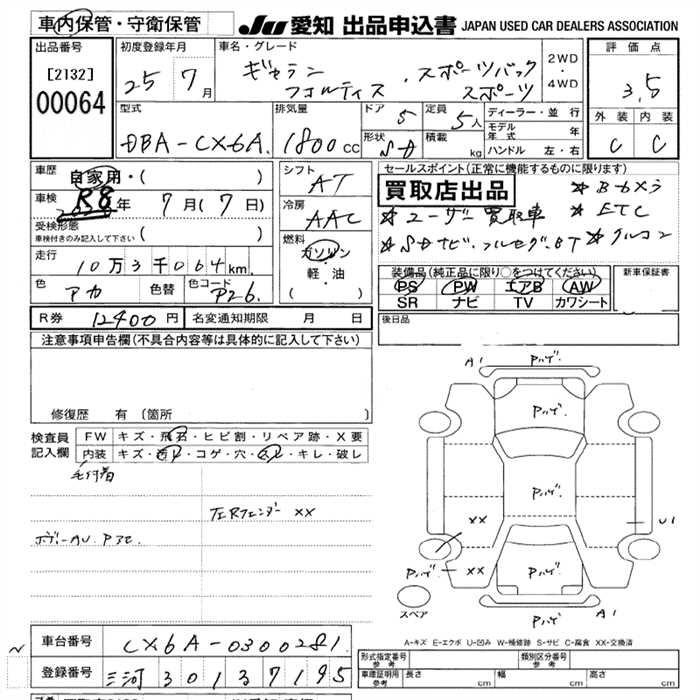 車内保管・守衛保管
JU 愛知 出品申込書 JAPAN USED CAR DEALERS ASSOCIATION
出品番号
[2132]
00064
初度登録年月
25年 7月
車名・グレード
ギャラン フォルティス スポーツバック スポーツ
2WD
・
4WD
評価点
3.5
外装 内装
C C
型式
DBA-CX6A
排気量
1800 cc
ドア
5
形状
SD
定員
5人
積載 kg
ディーラー・並行
モデル年式 年
ハンドル 左・右
車歴
自家用・( )
車検
R8年 7月(7日)
受検形態
車検付きのみ記入して下さい ( )
走行
10万3千064km
色 アカ 色替 色コード P26
シフト
AT
冷房
AAC
燃料
ガソリン
軽・油
( )
セールスポイント(正常に機能するものに限ります)
買取店出品
★ユーザー買取車
★SDナビ、フルセグ、BT
★ETC
★クルコン
装備品(純正品に限り○をつけてください)
PS PW エアB AW
SR ナビ TV カワシート
新車保証書
R券 12400円 名変通知期限 月 日
後日品
注意事項申告欄(不具合内容等は具体的に記入して下さい)
修復歴 有 (箇所 )
検査員記入欄
FW キズ・飛石・ヒビ割・リペア跡・X要
内装 キズ・汚レ・コゲ・穴・スレ・キレ・破レ
毛付着
左Rフェンダー XX
ボデーAU.P3C
A1
Pハゲ
Pハゲ
Pハゲ
XX
U1
Pハゲ
XX
Pハゲ
Pハゲ
A1
スペア
A-キズ E-エクボ U-凹み W-補修跡 S-サビ C-腐食 XX-交換済
車台番号
CX6A-0300281
登録番号
三河 301 3 7195
型式指定番号 参考
類別区分番号 参考
車庫証明用 参考
長さ cm 幅 cm 高さ cm